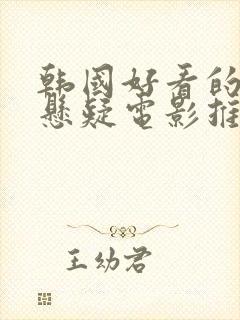 韩国好看的
悬疑电影推
王幼君